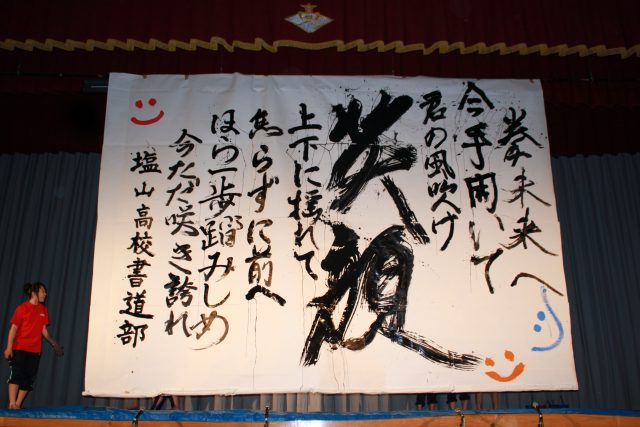 未来へ
今手開いて
君の風吹け
笑顔
上下に揺れて
焦らずに前へ
ほら一歩踏みしめ
今ただ咲き誇れ
塩山高校書道部